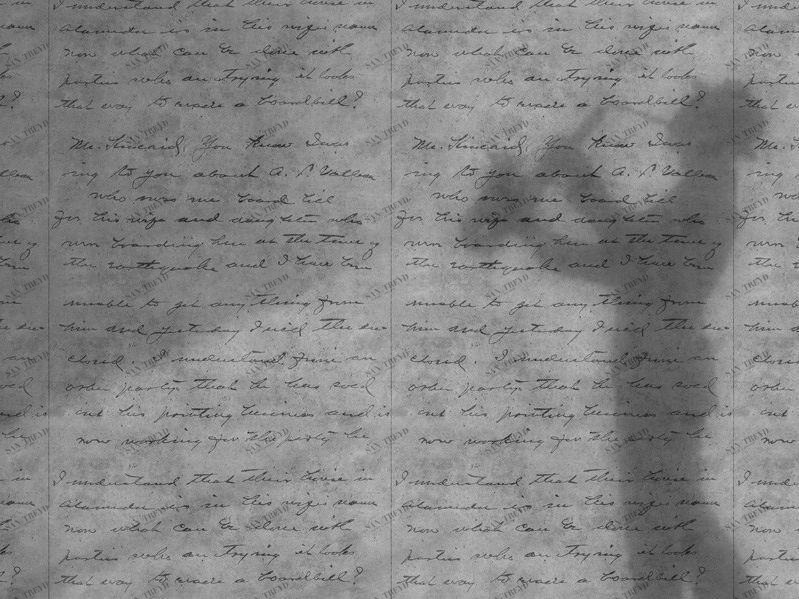 I understand that their house in
Alameda is in his wifes name
now what can be done with
parties who are trying it looks
that way to evade a board bill?
Mr. Kincaid, You know I was
ing to you about A. P.
who owes me board bill
for his wife and daughter who
were boarding here at the time of
the earthquake and I have been
unable to get any thing from
him and yesterday I read the en-
closed. I understand from an
other party that he has sold
out his painting business and is
now working for the party he
I understand that their house in
Alameda is in his wifes name
now what can be done with
parties who are trying it looks
that way to evade a board bill?
I understand that their house in
Alameda is in his wifes name
now what can be done with
parties who are trying it looks
that way to evade a board bill?
Mr. Kincaid, You know I was
ing to you about A. P.
who owes me board bill
for his wife and daughter who
were boarding here at the time of
the earthquake and I have been
unable to get any thing from
him and yesterday I read the en-
closed. I understand from an
other party that he has sold
out his painting business and is
now working for the party he
I understand that their house in
Alameda is in his wifes name
now what can be done with
parties who are trying it looks
that way to evade a board bill?